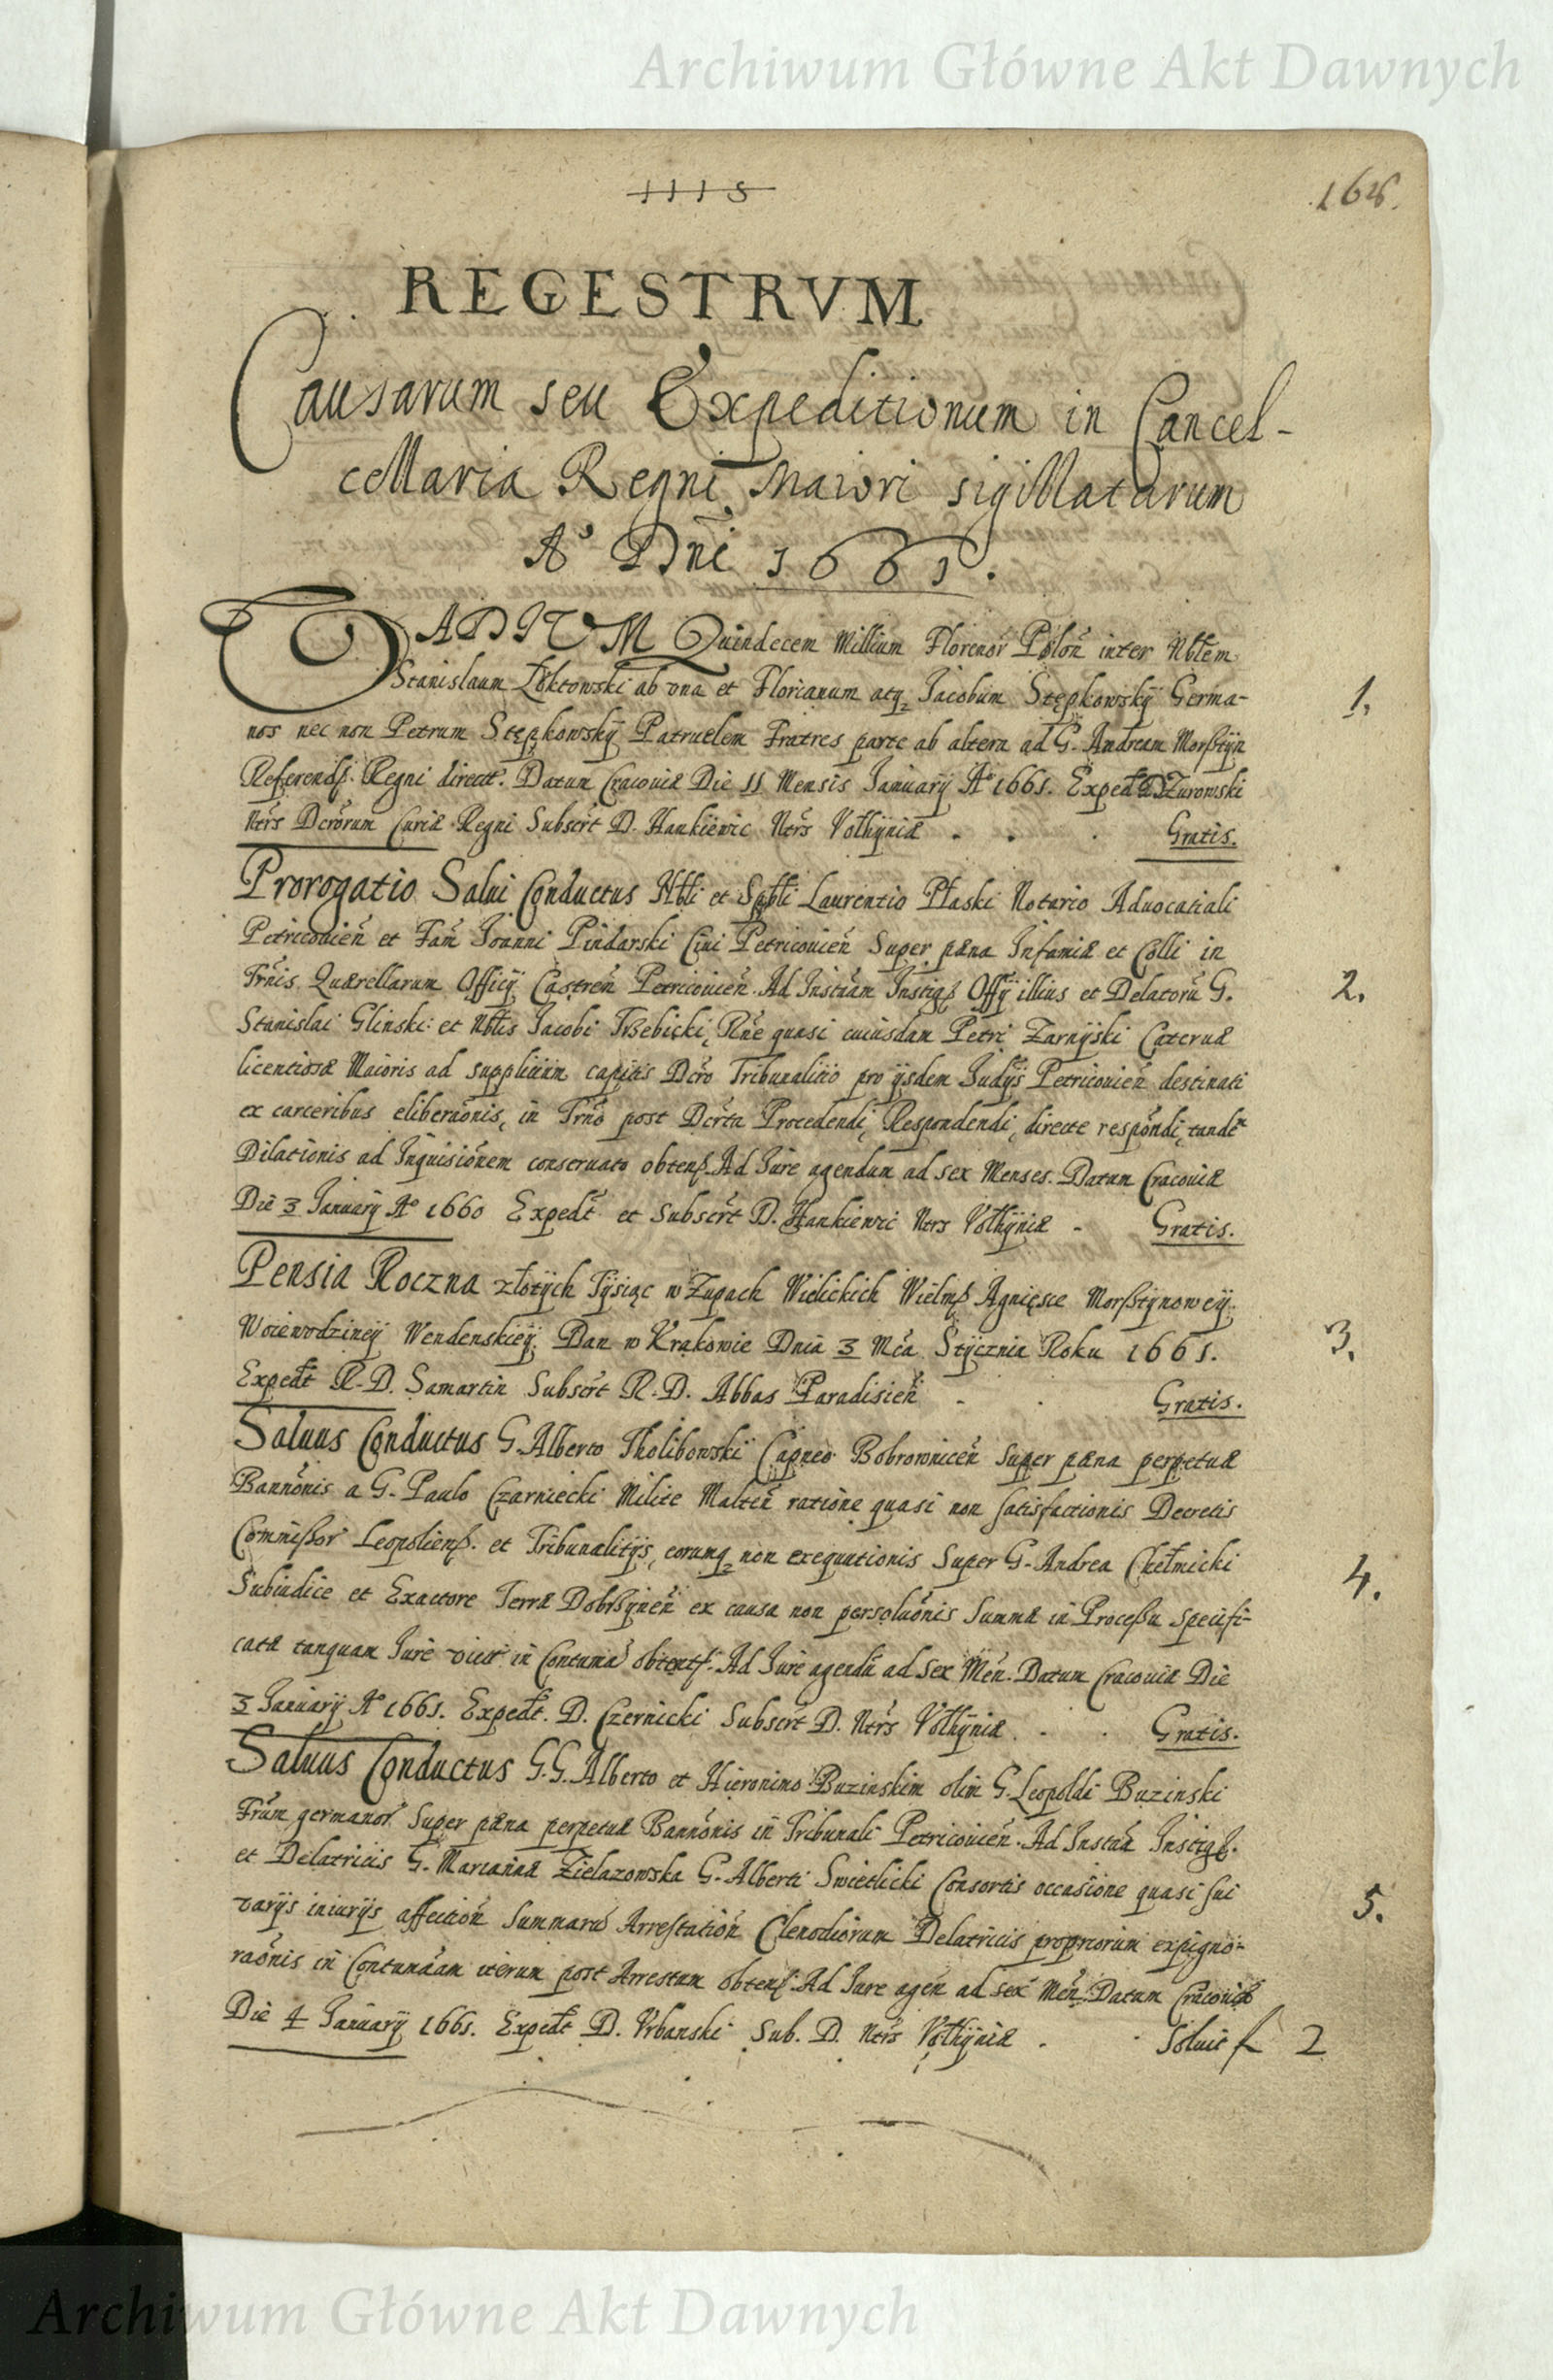 Archiwum Główne Akt Dawnych
1115
168.
REGESTRVM
Causarum seu Expeditionum in Cancel-
cellaria Regni Maiori sigillatarum
Aº Dni 1661.
VADIVM Quindecem Millium Florenor Polon inter Nblem
Stanislaum Łoktowski ab vna et Florianum atq Jacobum Stępkowsky Germa-
nos nec non Petrum Stępkowsky Patruelem Fratres parte ab altera ad G. Andream Morsztyn
Referendß. Regni directt. Datum Cracoviæ Die 11 Mensis January Aº 1661. Expedt D Zurowski
Ntrs Dcrorum Curiæ Regni Subscrt D. Hankiewic Ntrs Volhyniæ . . . Gratis.
1.
Prorogatio Salui Conductus Nbli et Spbli Laurentio Płaski Notario Aduocatiali
Petricouien et Fam Joanni Pindarski Ciui Petricouien Super pæna Infamiæ et Colli in
Trnis Quærellarum Officij Castren Petricouien Ad Instam Instigß Offij illius et Delatoru G.
Stanislai Glinski et Nblis Jacobi Trzebicki, Rne quasi cuiusdam Petri Zarnyski Cateruæ
licentiosæ Maioris ad supplicium capitis Dcro Tribunalitio pro ijsdem Judijs Petricouien destinati
ex carceribus eliberaonis, in Trno post Dcrta Procedendi, Respondendi, directe respondi, tande
Dilationis ad Inquisionem conseruato obtenß. Ad Iure agendum ad sex Menses. Datum Cracoviæ
Die 3 January Aº 1660 Expedt et Subscrt D. Hankiewic Ntrs Volhyniæ - Gratis.
2.
Pensia Roczna złotych Tysiąc w Zupach Wielickich Wielmß Agnięsce Morsztynowey
Woiewodziney Wendenskiey. Dan w Krakowie Dnia 3 Mca Stycznia Roku 1661.
Expedt R. D. Samartin Subscrt R. D. Abbas Paradisien . . Gratis.
3.
Saluus Conductus G. Alberto Tholibowski Capneo Bobrownicen super pæna perpetuæ
Bannonis a G. Paulo Czarniecki Milite Malten ratione quasi non satisfactionis Decretis
Commissor Leopolienß. et Tribunalitijs, eorumq non exequutionis Super G. Andrea Chełmicki
Subiudice et Exactore Terræ Dobrzynen ex causa non persoluonis Summæ in Processu specifi-
catæ tanquam Iure vict in Contuma obtentß. Ad Iure agendu ad sex Men. Datum Cracoviæ Die
3 January Aº 1661. Expedt. D. Czernicki Subscrt D. Ntrs Volhyniæ . . Gratis.
4.
Saluus Conductus G.G. Alberto et Hieronimo Buzinskim olim G. Leopoldi Buzinski
Frum germanor Super pæna perpetuæ Bannonis in Tribunali Petricouien. Ad Insta Instigß.
et Delatricis G. Marianæ Zielazowska G. Alberti Swietlicki Consortis occasione quasi sui
varijs iniurijs affection Summaru Arrestation Clenodiorum Delatricis propriorum expigno-
raonis in Contumaam iterum post Arrestum obtenß. Ad Iure agen ad sex Men. Datum Cracoviæ
Die 4 January 1661. Expedt D. Vrbanski Sub. D. Ntrs Volhyniæ . . Soluit f 2
5.
Archiwum Główne Akt Dawnych